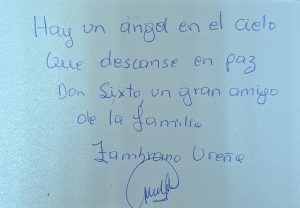 Hay un ángel en el cielo
que descanse en paz
Don Sixto un gran amigo
de la familia
Zambrano Ureña